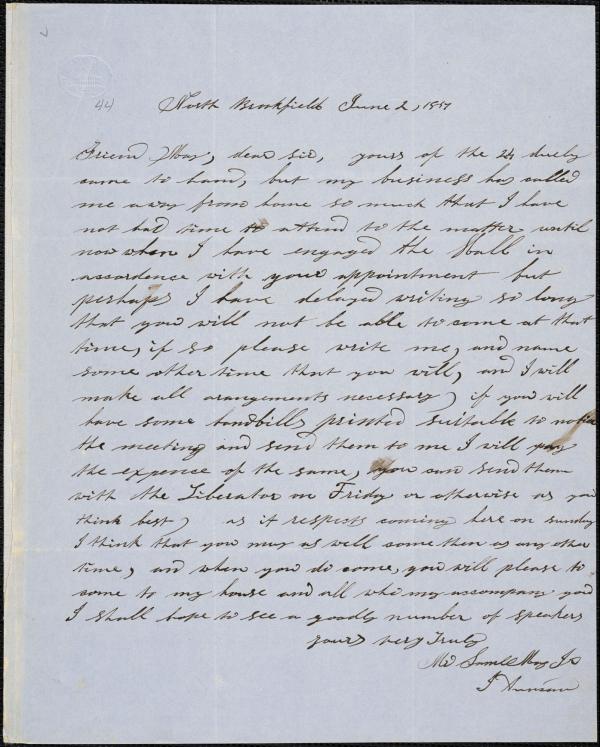 44
North Brookfield June 2, 1857
Friend May, dear sir, yours of the 24 duely
came to hand, but my business has called
me away from home so much that I have
not had time to attend to the matter until
now when I have engaged the Hall in
accordence with your appointment but
perhaps I have delayed writing so long
that you will not be able to come at that
time, if so please write me, and name
some other time that you will, and I will
make all arangements necessary, if you will
have some handbills printed suitable to notice
the meeting and send them to me I will pay
the expence of the same, you can send them
with the Liberator on Friday or otherwise as you
think best, as it respects coming here on sunday
I think that you may as well come then as any other
time, and when you do come, you will please to
come to my house and all who may accompany you
I shall hope to see a goodly number of speakers
yours very Truly
Mr Samll May Jr